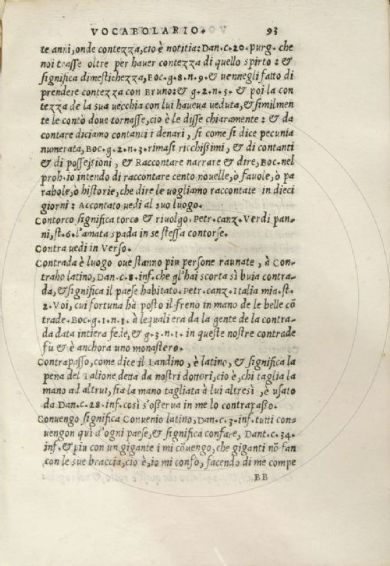 VOCABOLARIO. 93
te anni, onde contezza, cio è notitia: Dan.c.20.purg. che
noi trasse oltre per hauer contezza di quello spirto : &
significa dimestichezza, Boc.g.8.n.9. & uennegli fatto di
prendere contezza con Bruno: & g.2.n.5. & poi la con
tezza de la sua uecchia con lui haueua ueduta, & similmen
te le contò doue tornasse, cio è le disse chiaramente : & da
contare diciamo contanti i denari, si come si dice pecunia
numerata, Boc.g.2.n.3. rimasi ricchissimi, & di contanti
& di possessioni, & Raccontare narrare & dire, Boc. nel
proh. io intendo di raccontare cento nouelle, ò fauole, ò pa
rabole, ò historie, che dire le uogliamo raccontate in dieci
giorni : Accontato uedi al suo luogo.
Contorco significa torco & riuolgo. Petr. canz. Verdi pan-
ni, st.6. l'amata spada in se stessa contorse.
Contra uedi in Verso.
Contrada è luogo oue stanno piu persone raunate, è Con-
traho latino, Dan.c.8.inf. che gl'hai scorta sì buia contra-
da, & significa il paese habitato. Petr. canz. Italia mia. st.
2. Voi, cui fortuna hà posto il freno in mano de le belle cō
trade. Boc.g.1.n.1. à lequali era da la gente de la contra-
da data intiera fede, & g.3.n.1. in queste nostre contrade
fu & è anchora uno monastero.
Contrapasso, come dice il Landino, è latino, & significa la
pena del Talione detta da nostri dottori, cio è, chi taglia la
mano ad altrui, sia la mano tagliata à lui altresì, è usato
da Dan.C.28.inf. così s'osserua in me lo contrapasso.
Conuengo significa Conuenio latino, Dan.c.3.inf. tutti con-
uengon qui d'ogni paese, & significa confare, Dant.c.34.
inf. & piu con un gigante i mi cōuengo, che giganti nō fan
con le sue braccia, cio è, io mi confo, facendo di me compe
BB